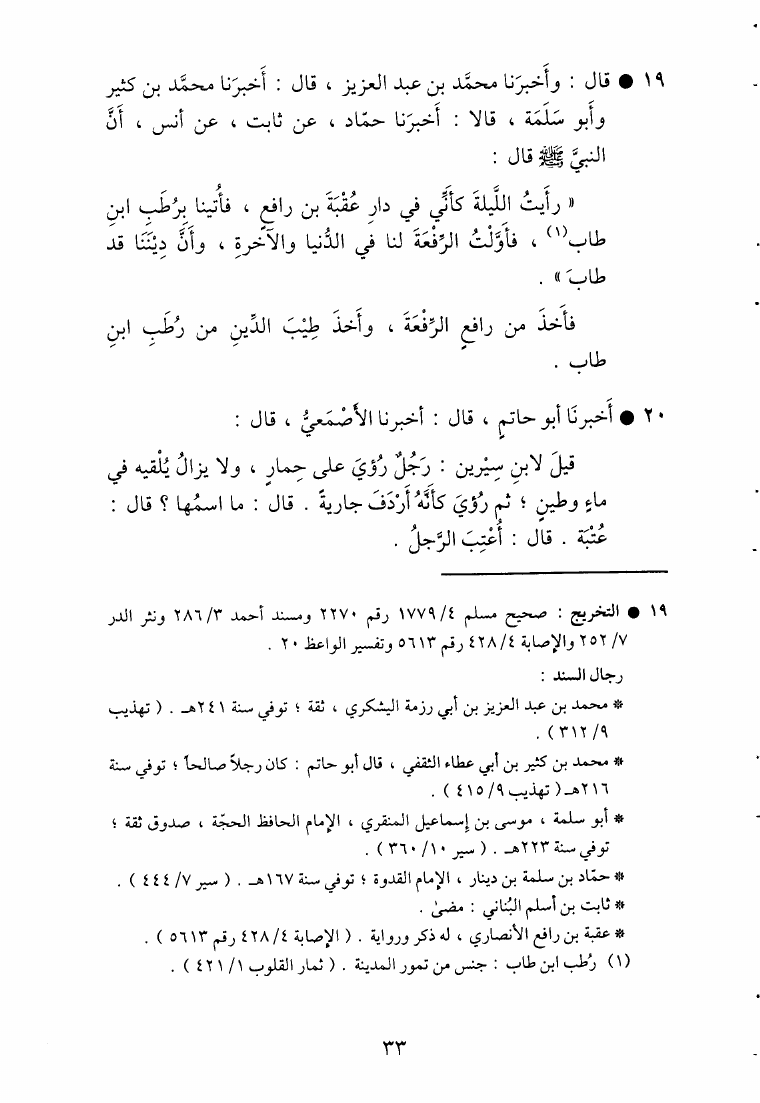 ١٩ ● قال : وأخبرَنا محمَّد بن عبد العزيز ، قال : أخبرَنا محمَّد بن كثير
وأبو سَلَمَة ، قالا : أخبرَنا حمّاد ، عن ثابت ، عن أنس ، أنَّ
النبيَّ ﷺ قال :
« رأيتُ اللَّيلةَ كأنِّي في دارِ عُقْبَةَ بن رافعٍ ، فأُتينا بِرُطَبِ ابنِ
طاب(١) ، فأَوَّلْتُ الرِّفْعَةَ لنا في الدُّنيا والآخرةِ ، وأنَّ دِيْنَنا قد
طابَ » .
فأَخذَ من رافعٍ الرِّفْعَةَ ، وأخذَ طِيْبَ الدِّينِ من رُطَبِ ابنِ
طاب .
٢٠ ● أَخبرنَا أبو حاتمٍ ، قال : أخبرنا الأَصْمَعيُّ ، قال :
قيلَ لابنِ سِيْرين : رَجُلٌ رُؤيَ على حِمارٍ ، ولا يزالُ يُلْقيه في
ماءٍ وطينٍ ؛ ثم رُؤيَ كأنَّهُ أَرْدَفَ جاريةً . قال : ما اسمُها ؟ قال :
عُتْبَة . قال : أُعْتِبَ الرَّجلُ .
١٩ ● التخريج : صحيح مسلم ٤/ ١٧٧٩ رقم ٢٢٧٠ ومسند أحمد ٣/ ٢٨٦ ونثر الدر
٧/ ٢٥٢ والإصابة ٤/ ٤٢٨ رقم ٥٦١٣ وتفسير الواعظ ٢٠ .
رجال السند :
* محمد بن عبد العزيز بن أبي رزمة اليشكري ، ثقة ؛ توفي سنة ٢٤١هـ . ( تهذيب
٩/ ٣١٢ ) .
* محمد بن كثير بن أبي عطاء الثقفي ، قال أبو حاتم : كان رجلاً صالحاً ؛ توفي سنة
٢١٦هـ ( تهذيب ٩/ ٤١٥ ) .
* أبو سلمة ، موسى بن إسماعيل المنقري ، الإمام الحافظ الحجّة ، صدوق ثقة ؛
توفي سنة ٢٢٣هـ . ( سير ١٠/ ٣٦٠ ) .
* حمّاد بن سلمة بن دينار ، الإمام القدوة ؛ توفي سنة ١٦٧هـ . ( سير ٧/ ٤٤٤ ) .
* ثابت بن أسلم البُناني : مضىٰ .
* عقبة بن رافع الأنصاري ، له ذكر ورواية . ( الإصابة ٤/ ٤٢٨ رقم ٥٦١٣ ) .
(١) رُطب ابن طاب : جنس من تمور المدينة . ( ثمار القلوب ١/ ٤٢١ ) .
٣٣